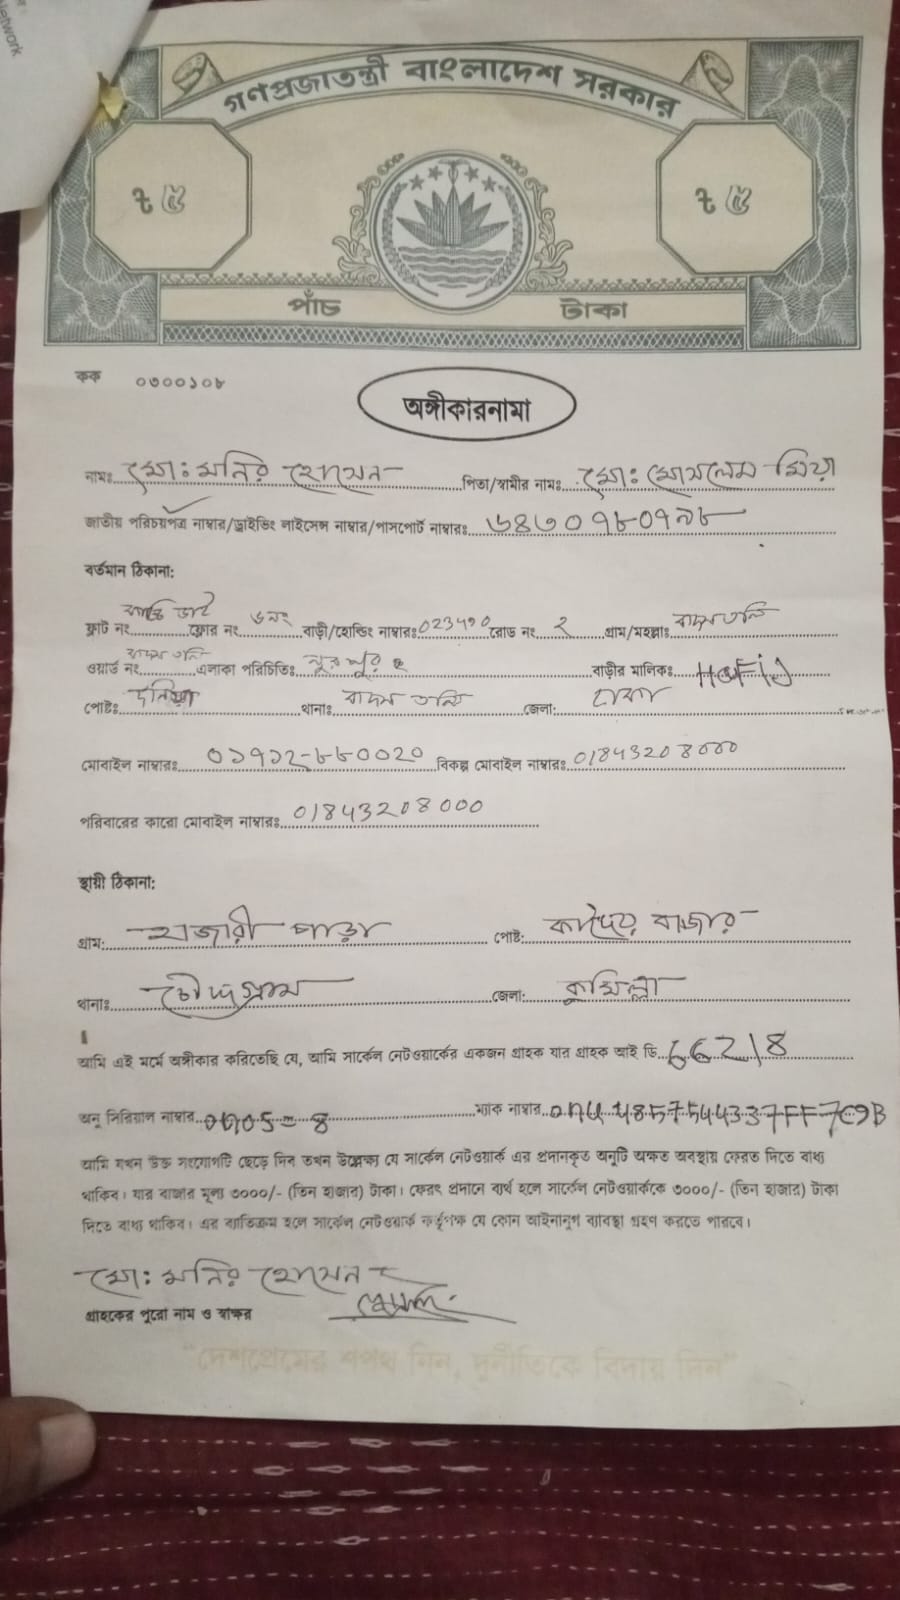 Network
গণপ্রজাতন্ত্রী বাংলাদেশ সরকার
৳ ৫ ৳ ৫
পাঁচ টাকা
কক ০৩০০১০৮
অঙ্গীকারনামা
নামঃ মো: মনির হোসেন পিতা/স্বামীর নামঃ মো: মোসলেম মিয়া
জাতীয় পরিচয়পত্র নাম্বার/ড্রাইভিং লাইসেন্স নাম্বার/পাসপোর্ট নাম্বারঃ ৬৪৩০৭৮০৭৯৮
বর্তমান ঠিকানা:
ফ্লাট নং ফ্লোর নং ৬নং বাড়ী/হোল্ডিং নাম্বারঃ রোড নং ২ গ্রাম/মহল্লাঃ
ওয়ার্ড নং এলাকা পরিচিতিঃ নুরপুর বাড়ীর মালিকঃ HaFij
পোষ্টঃ দনিয়া থানাঃ জেলা: ঢাকা
মোবাইল নাম্বারঃ ০১৯১২-৮৮০০২০ বিকল্প মোবাইল নাম্বারঃ 01843208000
পরিবারের কারো মোবাইল নাম্বারঃ 01843208000
স্থায়ী ঠিকানা:
গ্রাম: হাজারী পাড়া পোষ্ট: বাজার
থানাঃ চৌদ্দগ্রাম জেলা: কুমিল্লা
আমি এই মর্মে অঙ্গীকার করিতেছি যে, আমি সার্কেল নেটওয়ার্কের একজন গ্রাহক যার গ্রাহক আই ডি 66218
অনু সিরিয়াল নাম্বার ম্যাক নাম্বার
আমি যখন উক্ত সংযোগটি ছেড়ে দিব তখন উল্লেক্ষ্য যে সার্কেল নেটওয়ার্ক এর প্রদানকৃত অনুটি অক্ষত অবস্থায় ফেরত দিতে বাধ্য
থাকিব। যার বাজার মূল্য ৩০০০/- (তিন হাজার) টাকা। ফেরৎ প্রদানে ব্যর্থ হলে সার্কেল নেটওয়ার্ককে ৩০০০/- (তিন হাজার) টাকা
দিতে বাধ্য থাকিব। এর ব্যাতিক্রম হলে সার্কেল নেটওয়ার্ক কর্তৃপক্ষ যে কোন আইনানুগ ব্যাবস্থা গ্রহণ করতে পারবে।
মো: মনির হোসেন
গ্রাহকের পুরো নাম ও স্বাক্ষর
"দেশপ্রেমের শপথ নিন, দুর্নীতিকে বিদায় দিন"